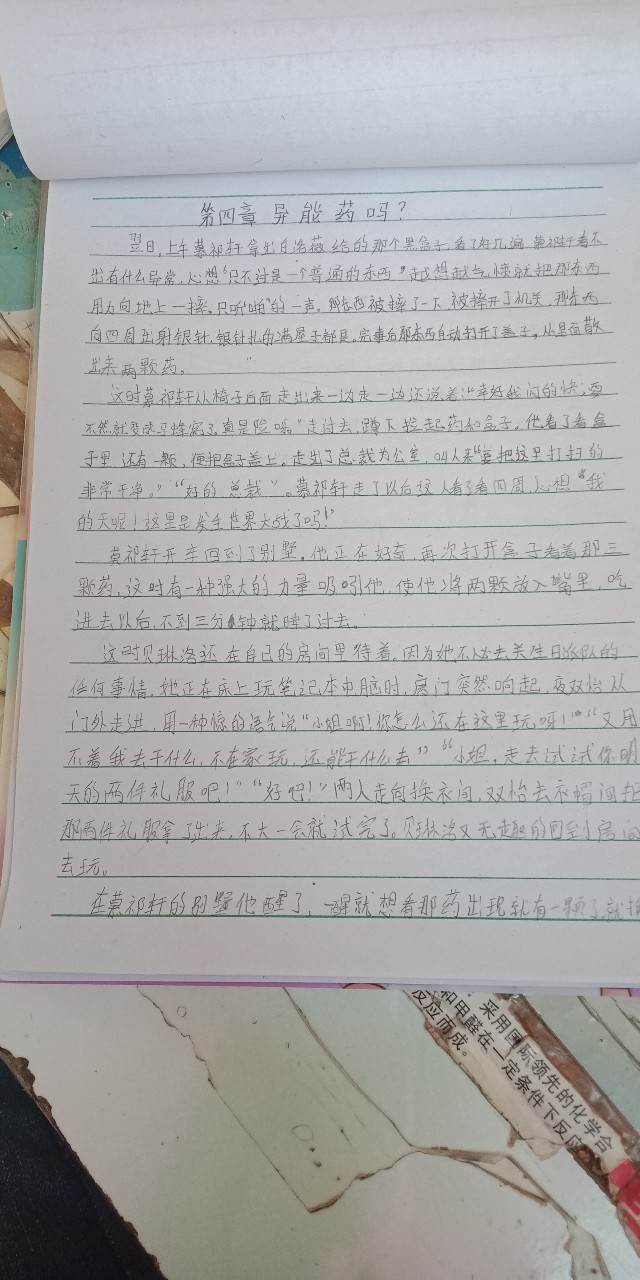 第四章 异能药吗？
翌日，上午慕祁轩拿出白洛薇给的那个黑盒子，看了好几遍，慕祁轩看不
出有什么异常，心想“只不过是一个普通的东西”越想越气，懊就把那东西
用力向地上一摔。只听“啪”的一声，那东西被摔了一下，被摔开了机关，那东西
向四周出射银针，银针扎的满屋子都是。完事后那东西自动打开了盖子。从里面散
出来两颗药。
这时慕祁轩从椅子后面走出来一边走一边还说着：“幸好我闪的快，要
不然就变成马蜂窝了，真是险呀。”走过去，蹲下捡起药和盒子。他看了看盒
子里还有一颗，便把盒子盖上。走出了总裁办公室，叫人来“要把这里打扫的
非常干净。”“好的 总裁”。慕祁轩走了以后这人看了看四周，心想“我
的天呢！这里是发生世界大战了吗！”
慕祁轩开车回到了别墅。他正在好奇，再次打开盒子看着那三
颗药，这时有一种强大的力量吸引他，使他将两颗放入嘴里，吃
进去以后，不到三分钟就睡了过去。
这时贝琳洛还在自己的房间里待着。因为她不必去关生日派队的
任何事情。她正在床上玩笔记本电脑时，房门突然响起，夜双怡从
门外走进，用一种惊的语气说“小姐啊！你怎么还在这里玩呀！”“又用
不着我去干什么，不在家玩，还能干什么去”“小姐，走去试试你明
天的两件礼服吧！”“好吧！”两人走向换衣间，双怡去衣帽间把
那两件礼服拿了出来，不大一会就试完了。贝琳洛又无趣的回到房间
去玩。
在慕祁轩的别墅他醒了，一醒就想看那药出现就有一颗了，就
采用国际领先的化学合
和甲醛在一定条件下反应
反应而成。